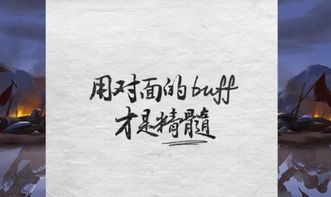 用对面的buff
才是精髓